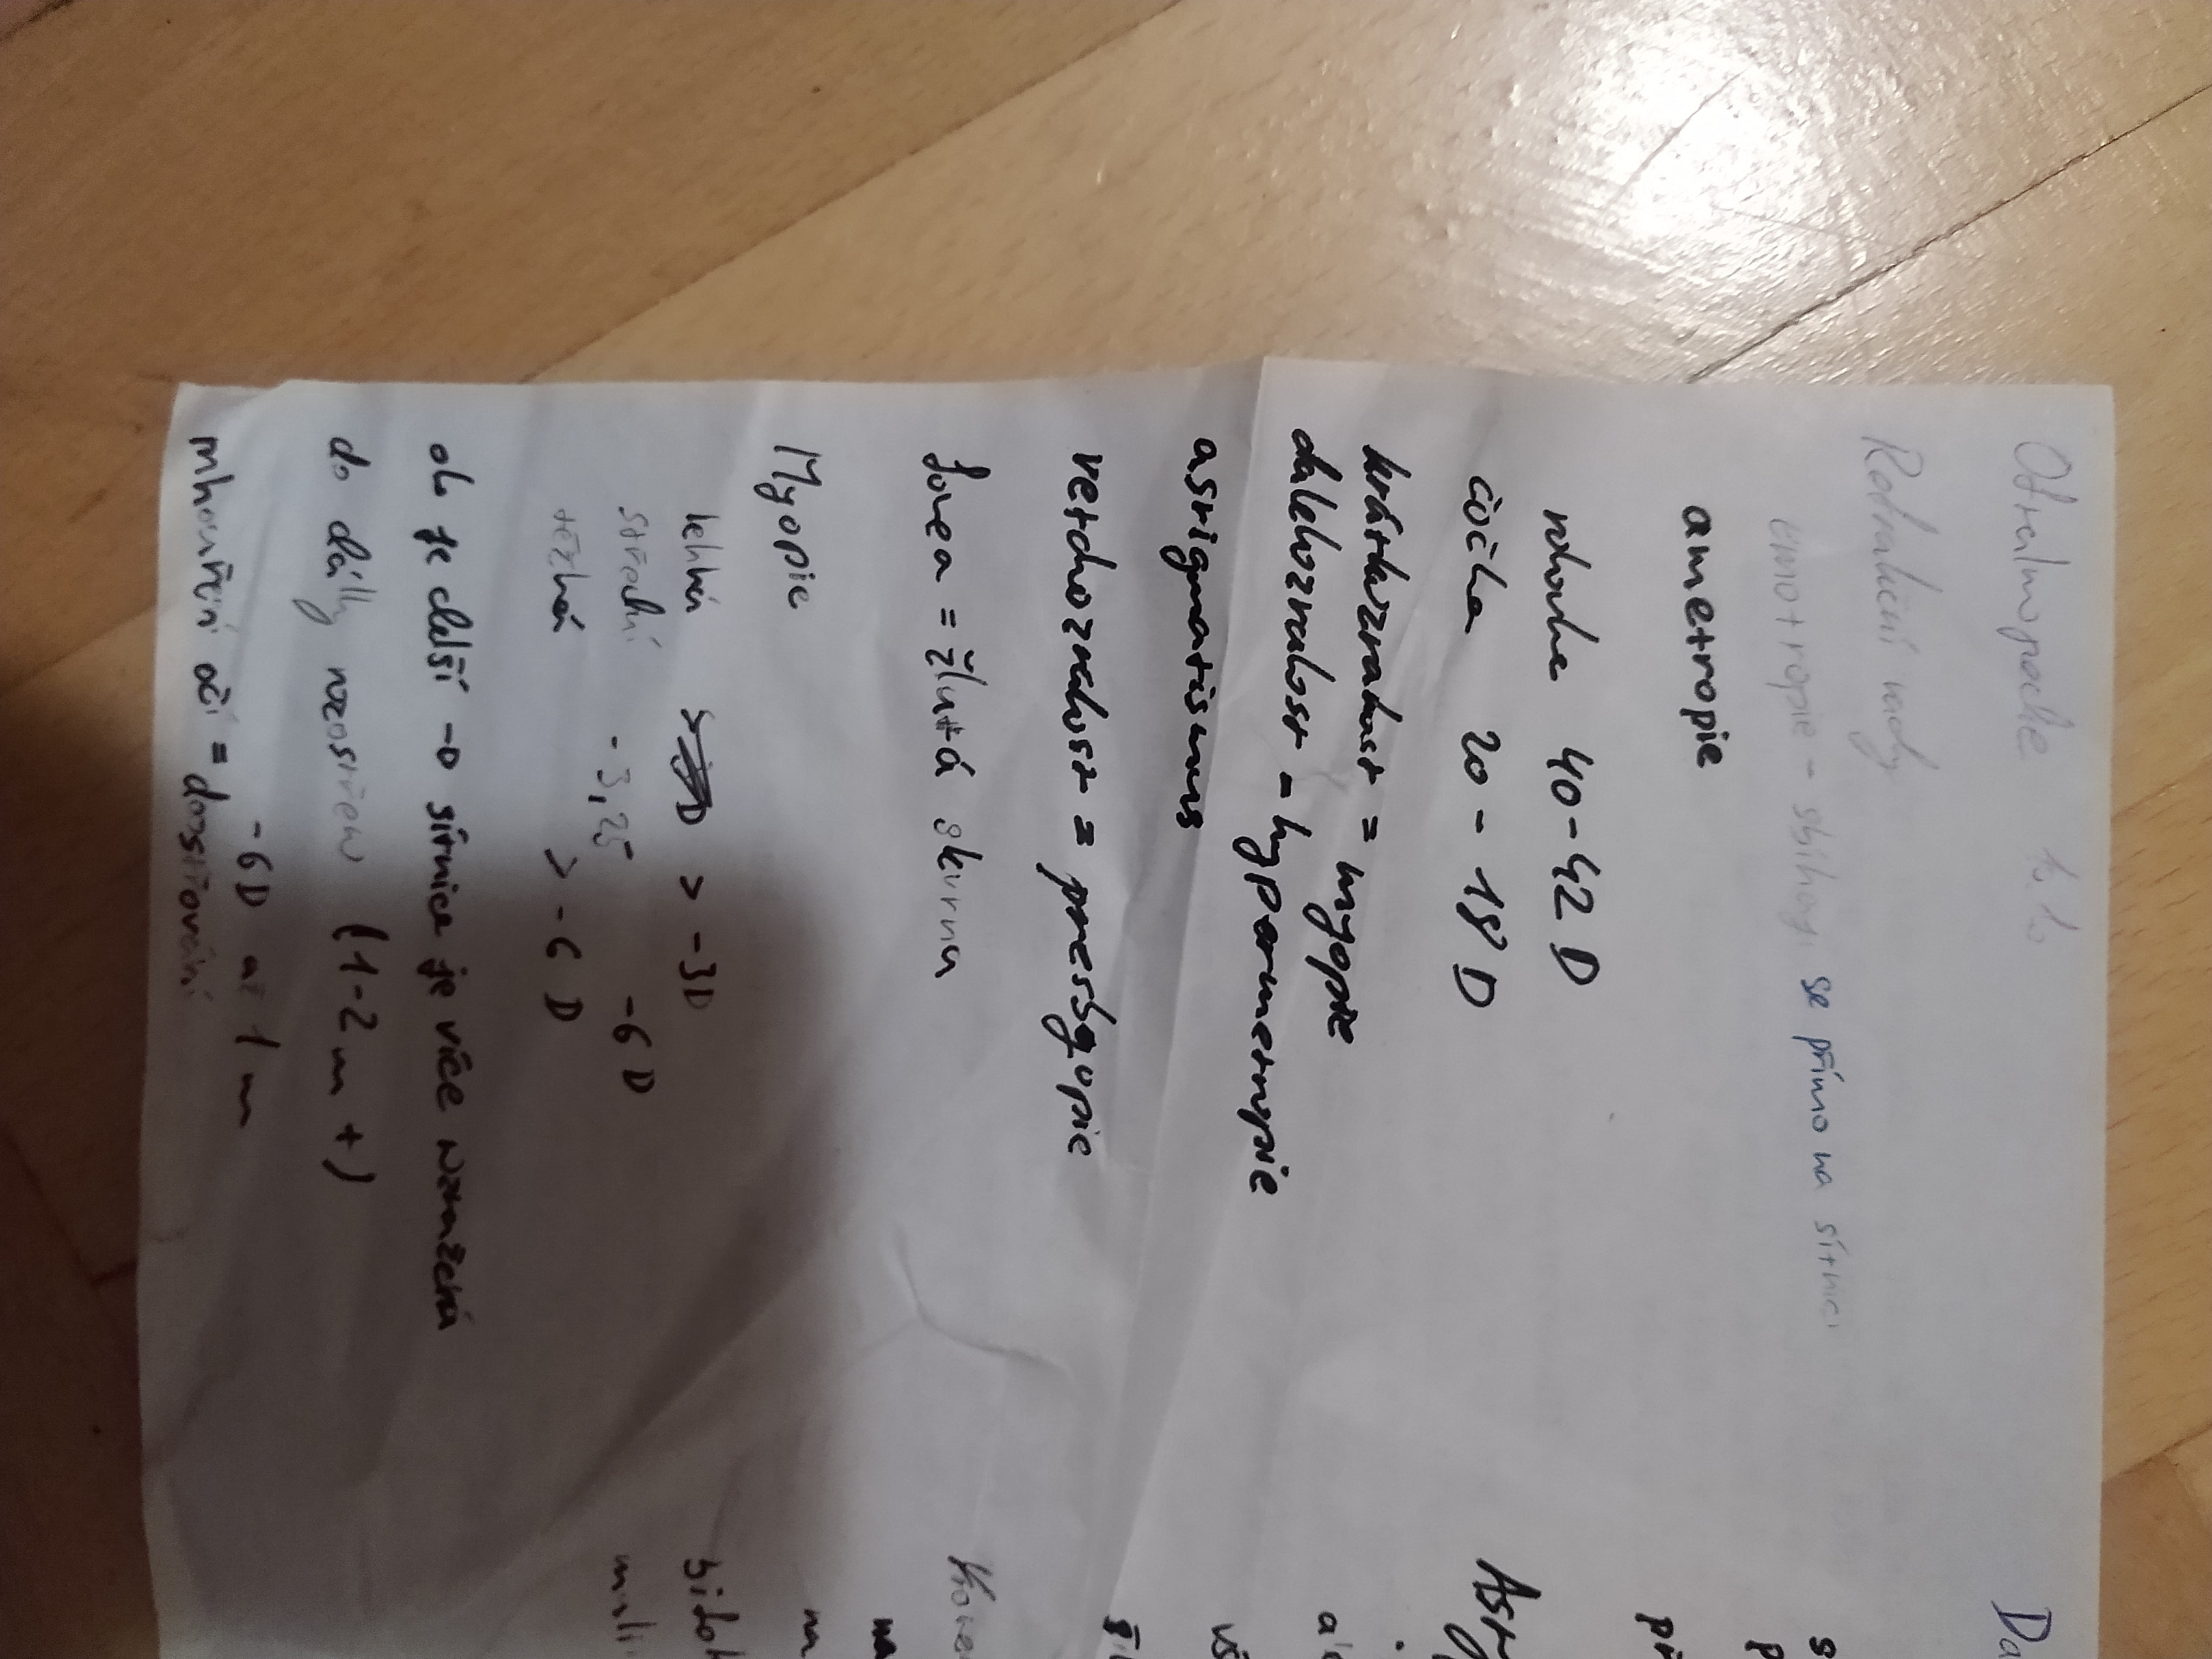 Oftalmopocke 16.10
Refrakční vady
emotropie - sbíhají se přímo na sítnici
ametropie
rohovka 40-42 D
čočka 20 - 18 D
krátkozrakost = myopie
dalekozrakost - hyparmetropie
asrigmatismus
vetchozrakost = presbyopie
fovea = žlutá skvrna
Myopie
lehká > -3D
střední -3,25 -6D
těžká > -6 D
oko je delší → sítnice je více
do dálky rozostřen (1-2m+)
-6D až 1m
mhouření očí = doostřování
Da
s
p
př
Astr
a
vš
ši
Kone
na
na
sidol
muli